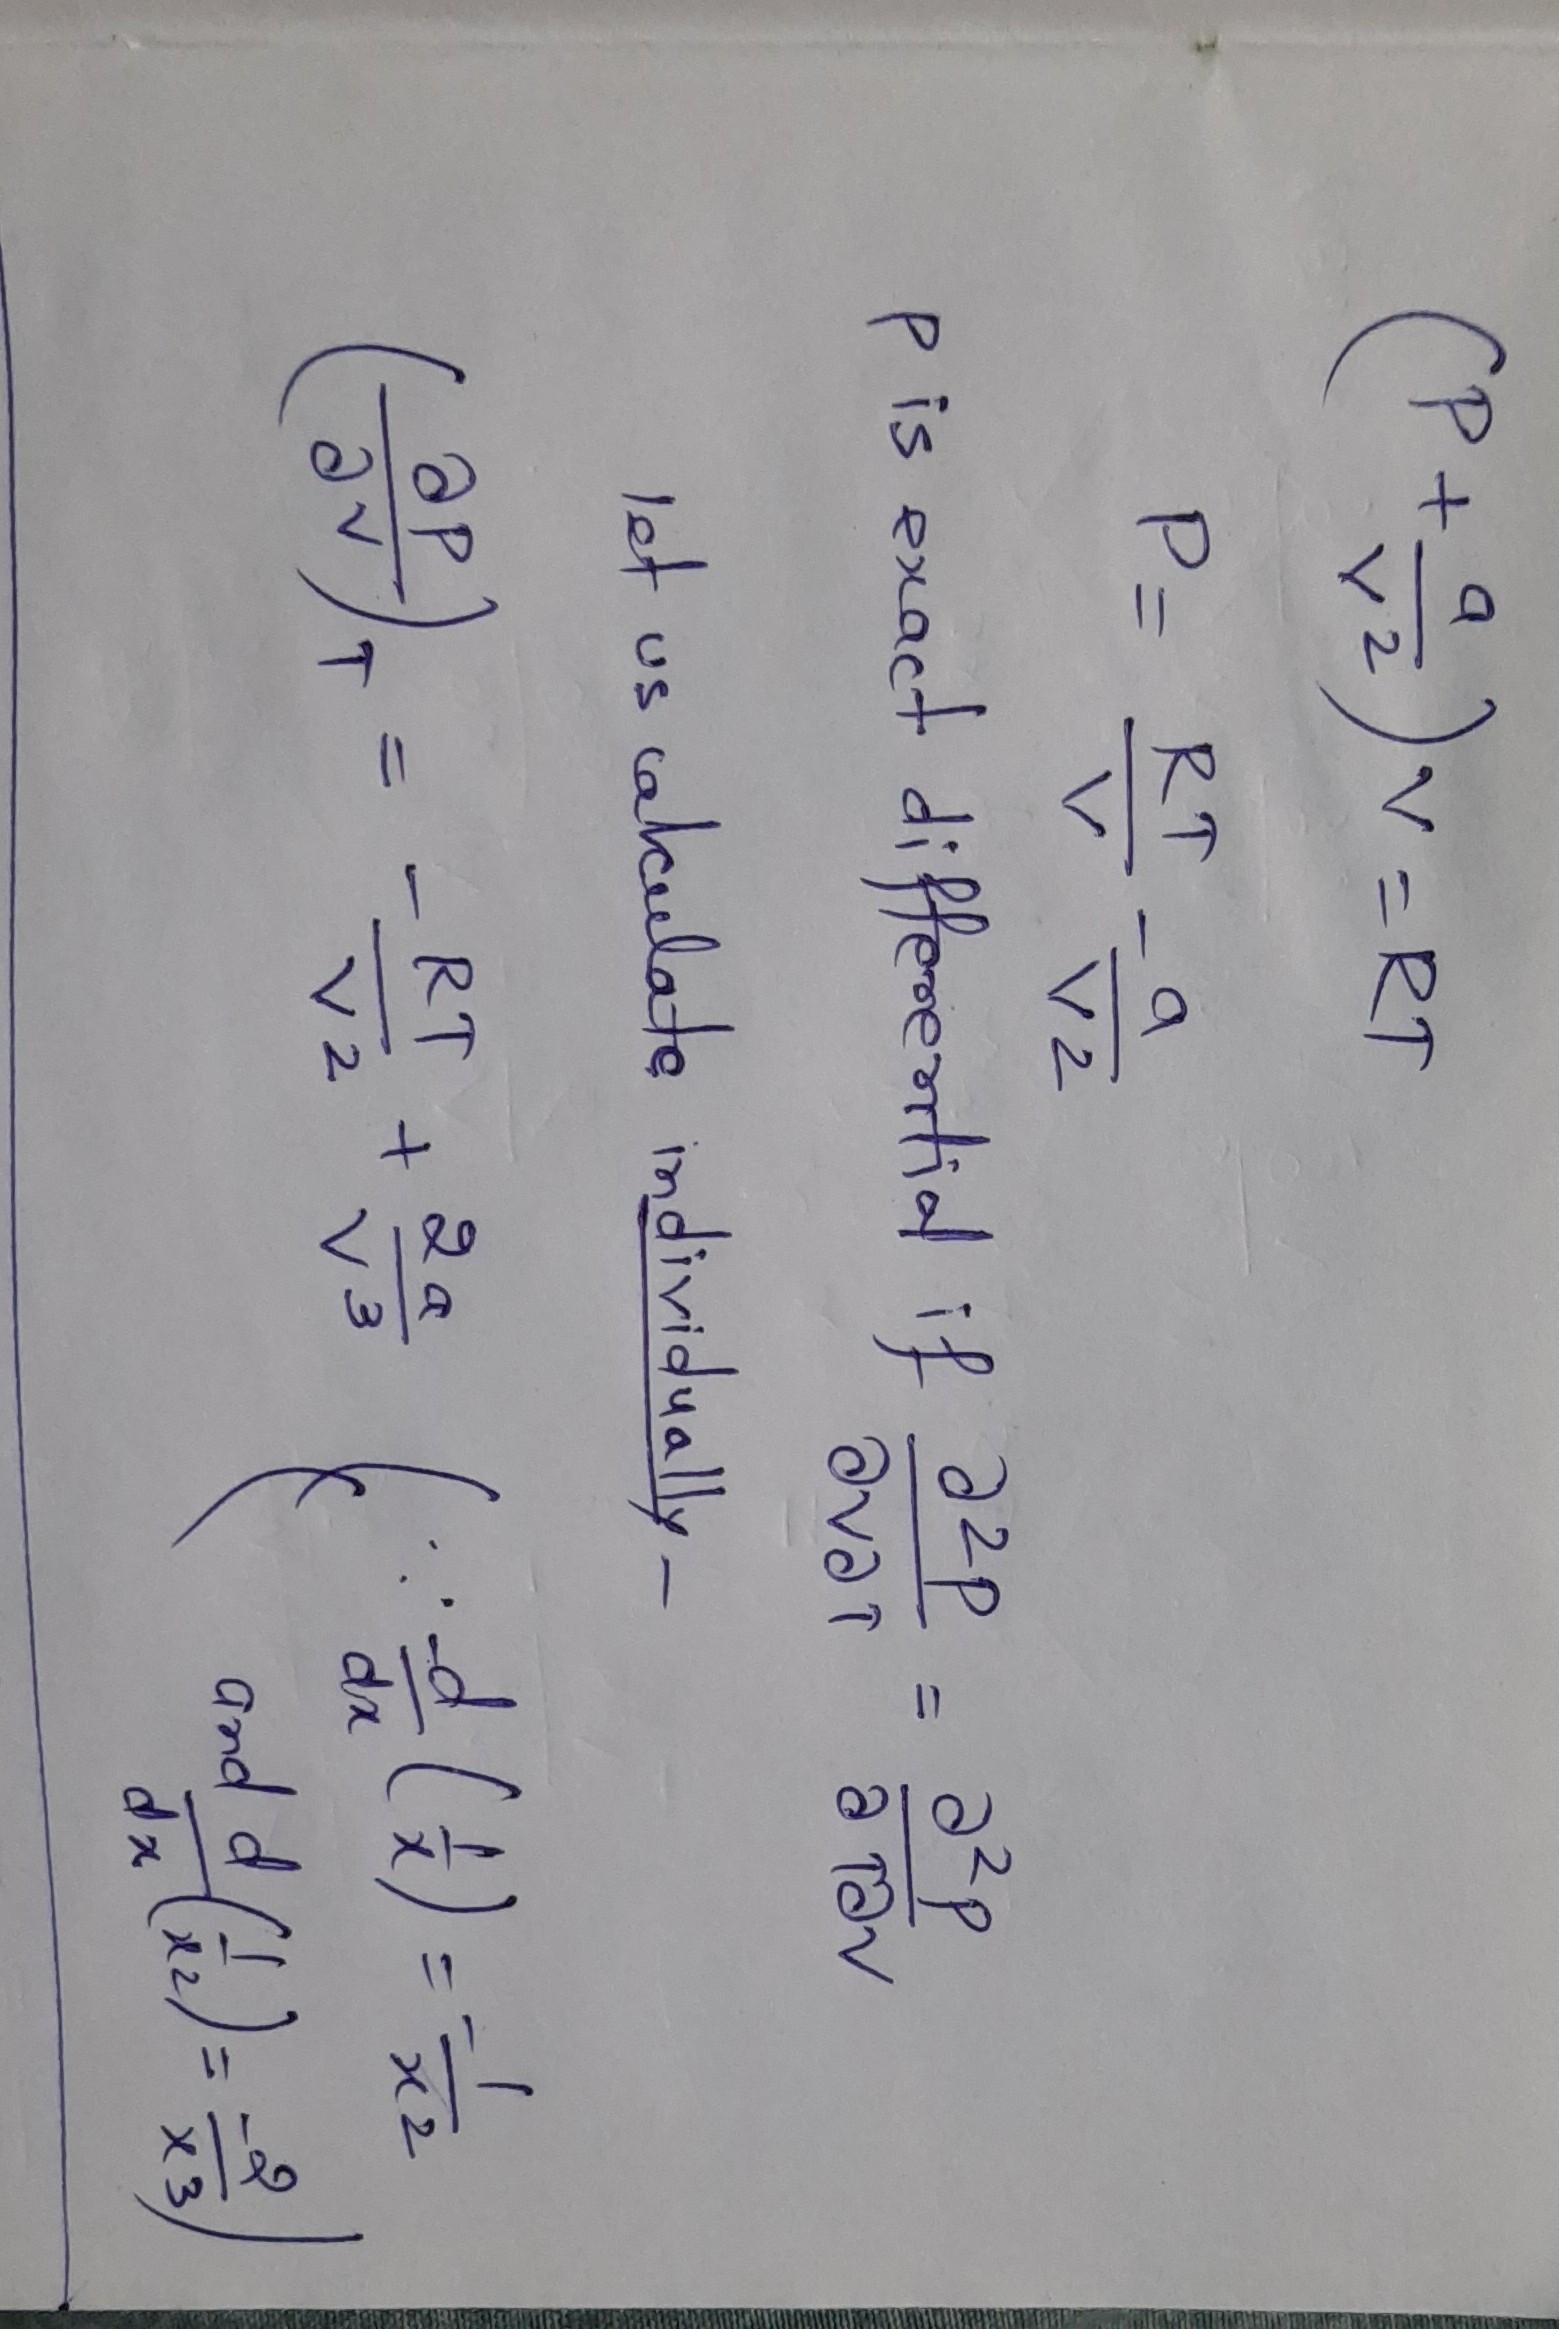 (P + a/V²) V = RT
P = RT/V - a/V²
P is exact differential if ∂²P/∂V∂T = ∂²P/∂T∂V
let us calculate individually -
(∂P/∂V)T = -RT/V² + 2a/V³ (∵ d/dx (1/x) = -1/x²
and d/dx (1/x²) = -2/x³)